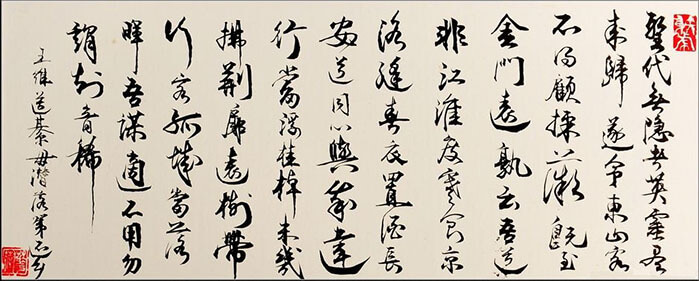 聖代無隱者英靈盡
來歸遂令東山客
不得顧採薇既至
金門遠孰云吾道
非江淮度寒食京
洛縫春衣置酒長
安道同心與我違
行當浮桂棹未幾
拂荆扉遠樹帶
行客孤城當落
暉吾謀適不用勿
謂知音稀
王維送綦毋潛落第還鄉